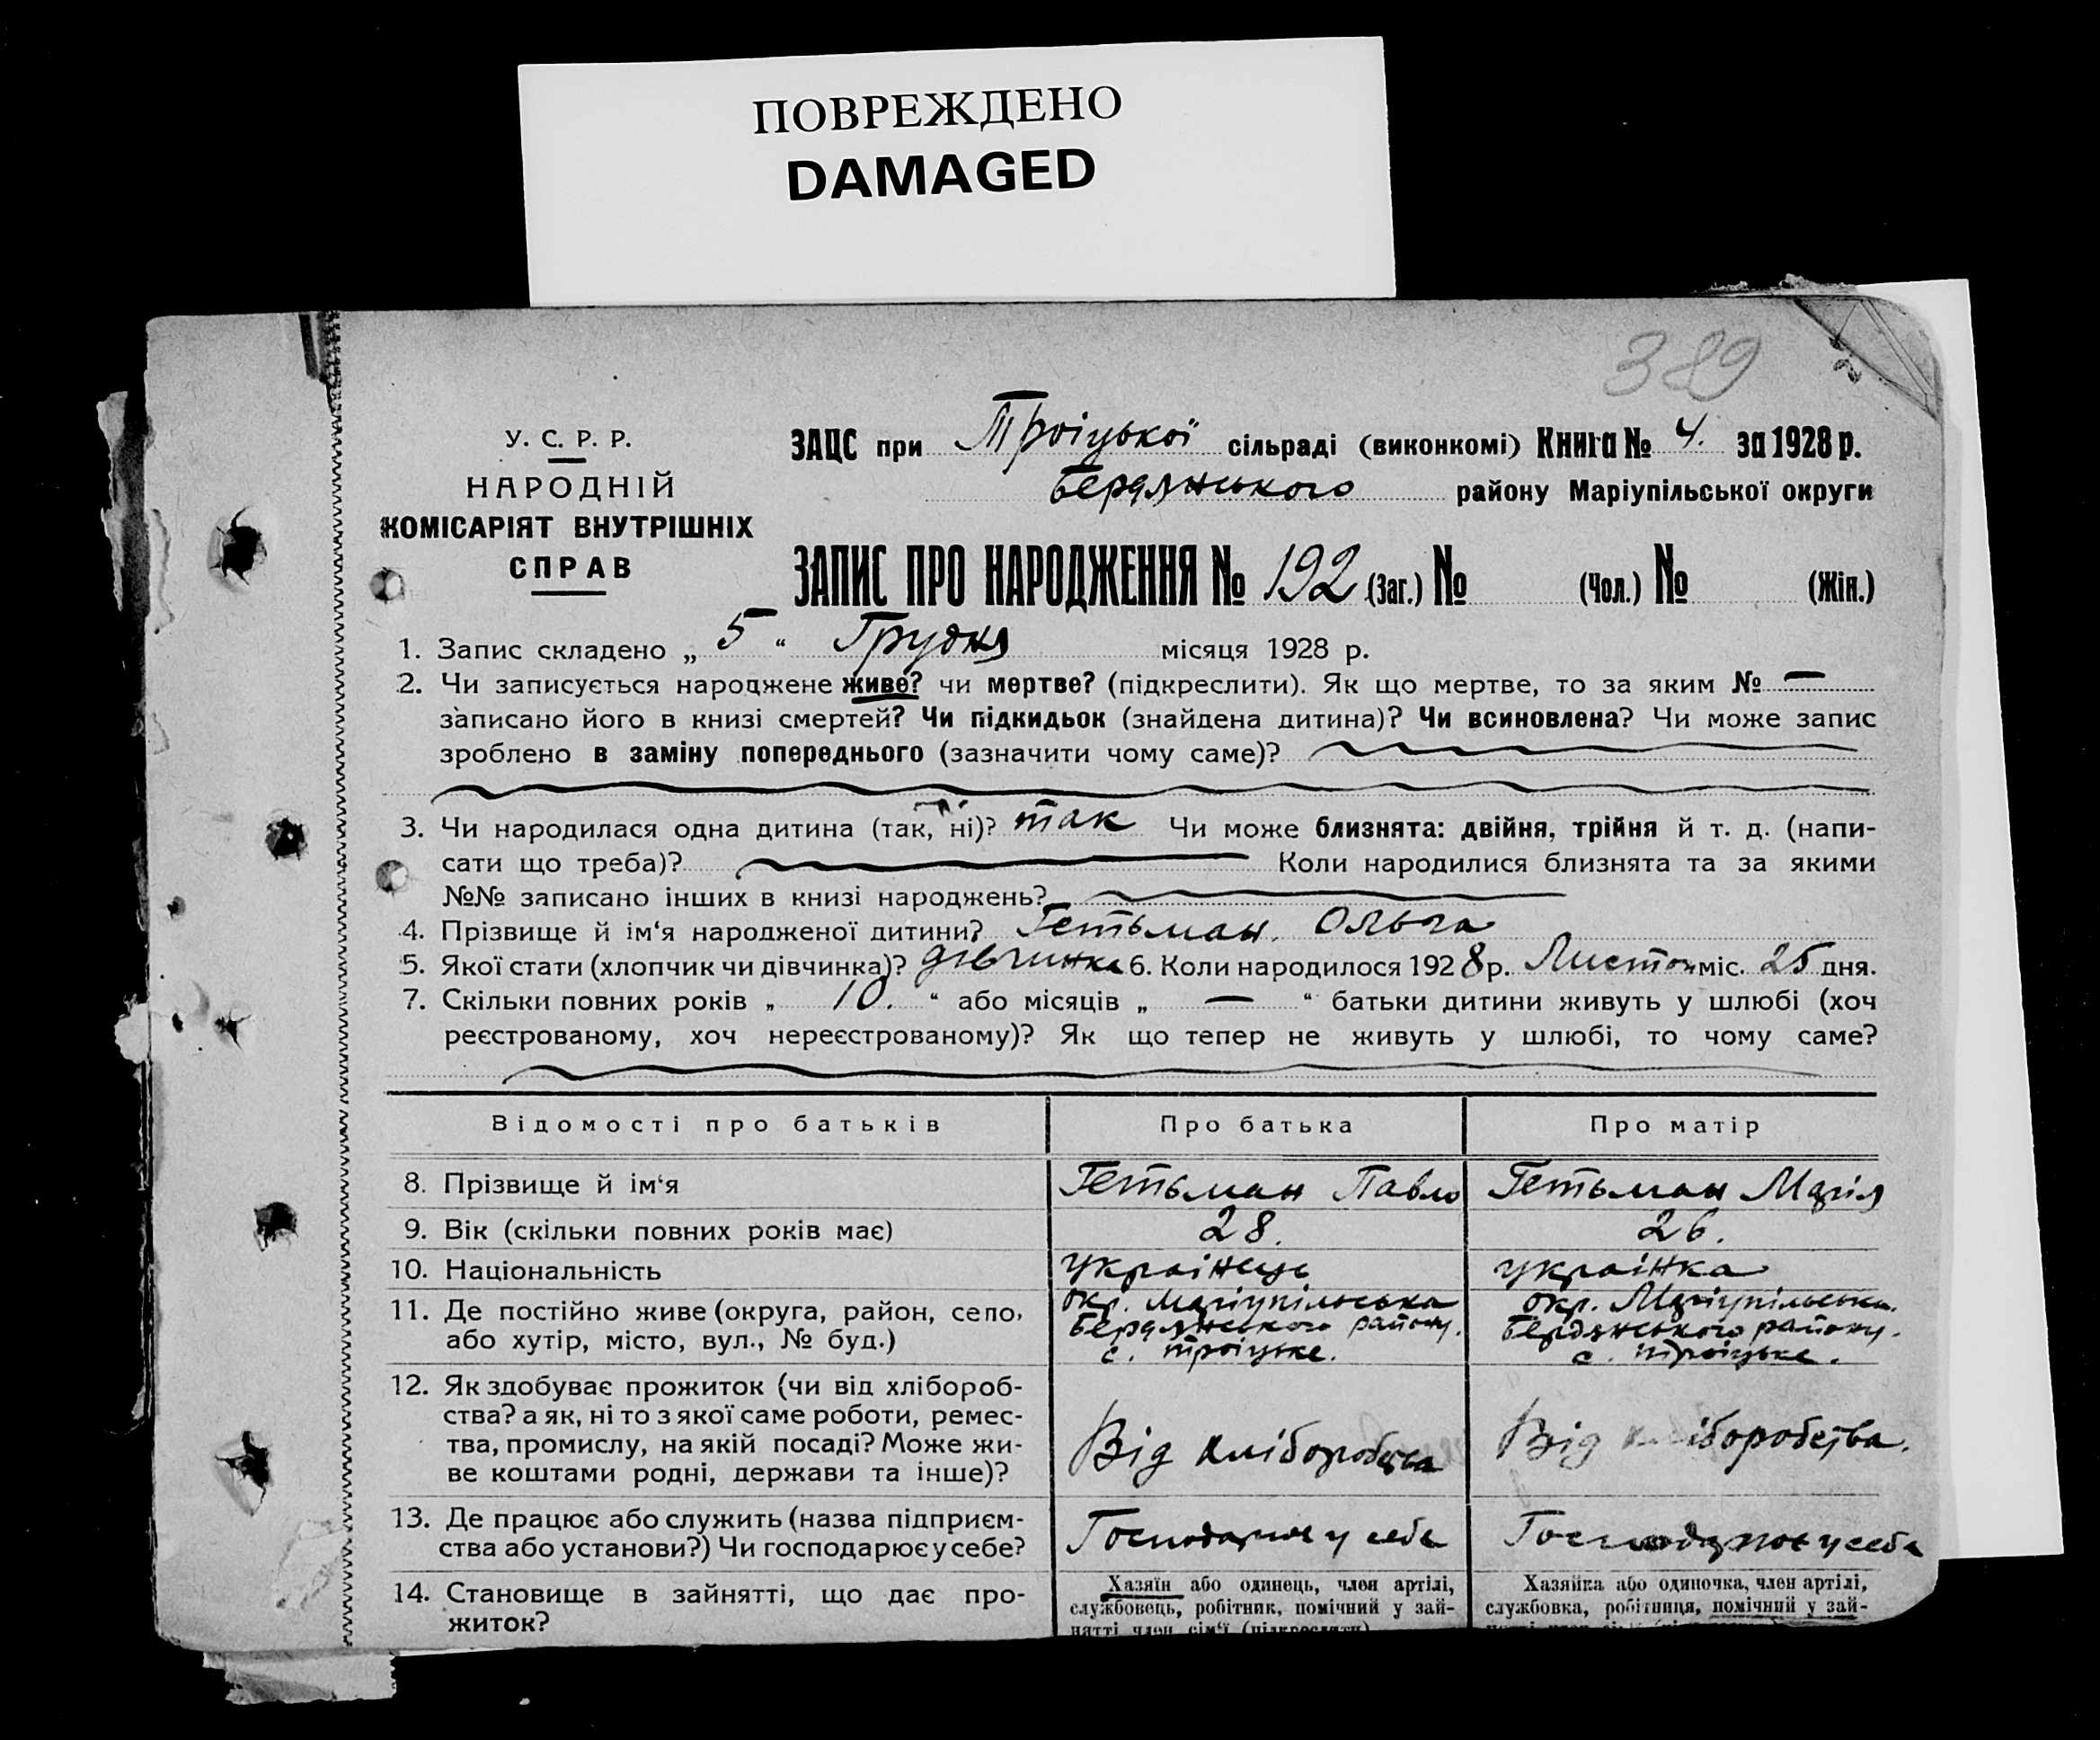 ПОВРЕЖДЕНО
DAMAGED
389
У. С. Р. Р.
НАРОДНІЙ
КОМІСАРІЯТ ВНУТРІШНІХ
СПРАВ
ЗАЦС при Троіцької сільраді (виконкомі) Книга № 4. за 1928 р.
Бердянського району Маріупільської округи
ЗАПИС ПРО НАРОДЖЕННЯ № 192 (Заг.) № (Чол.) № (Жін.)
1. Запис складено „ 5 “ Грудня місяця 1928 р.
2. Чи записується народжене живе? чи мертве? (підкреслити). Як що мертве, то за яким № —
записано його в книзі смертей? Чи підкидьок (знайдена дитина)? Чи всиновлена? Чи може запис
зроблено в заміну попереднього (зазначити чому саме)?
3. Чи народилася одна дитина (так, ні)? так Чи може близнята: двійня, трійня й т. д. (напи-
сати що треба)? Коли народилися близнята та за якими
№№ записано інших в книзі народжень?
4. Прізвище й ім‘я народженої дитини? Гетьман. Ольга
5. Якої стати (хлопчик чи дівчинка)? дівчинка 6. Коли народилося 1928 р. Листоп міс. 25 дня.
7. Скільки повних років „ 10. “ або місяців „ — “ батьки дитини живуть у шлюбі (хоч
реєстрованому, хоч нереєстрованому)? Як що тепер не живуть у шлюбі, то чому саме?
Відомості про батьків Про батька Про матір
8. Прізвище й ім‘я Гетьман Павло Гетьман Марія
9. Вік (скільки повних років має) 28. 26.
10. Національність українець українка
11. Де постійно живе (округа, район, село,
або хутір, місто, вул., № буд.)
окр. Маріупільська
Бердянського району.
с. Троіцьке.
окр. Маріупільська.
Бердянського району.
с. Троіцьке.
12. Як здобуває прожиток (чи від хлібороб-
ства? а як, ні то з якої саме роботи, ремес-
тва, промислу, на якій посаді? Може жи-
ве коштами родні, держави та інше)?
Від хліборобства
Від хліборобства.
13. Де працює або служить (назва підприєм-
ства або установи?) Чи господарює у себе?
Господарює у себе
Господарює у себе
14. Становище в зайнятті, що дає про-
житок?
Хазяїн або одинець, член артілі,
службовець, робітник, помічний у зай-
нятті член сім‘ї (підкреслити)
Хазяйка або одиночка, член артілі,
службовка, робітниця, помічний у зай-